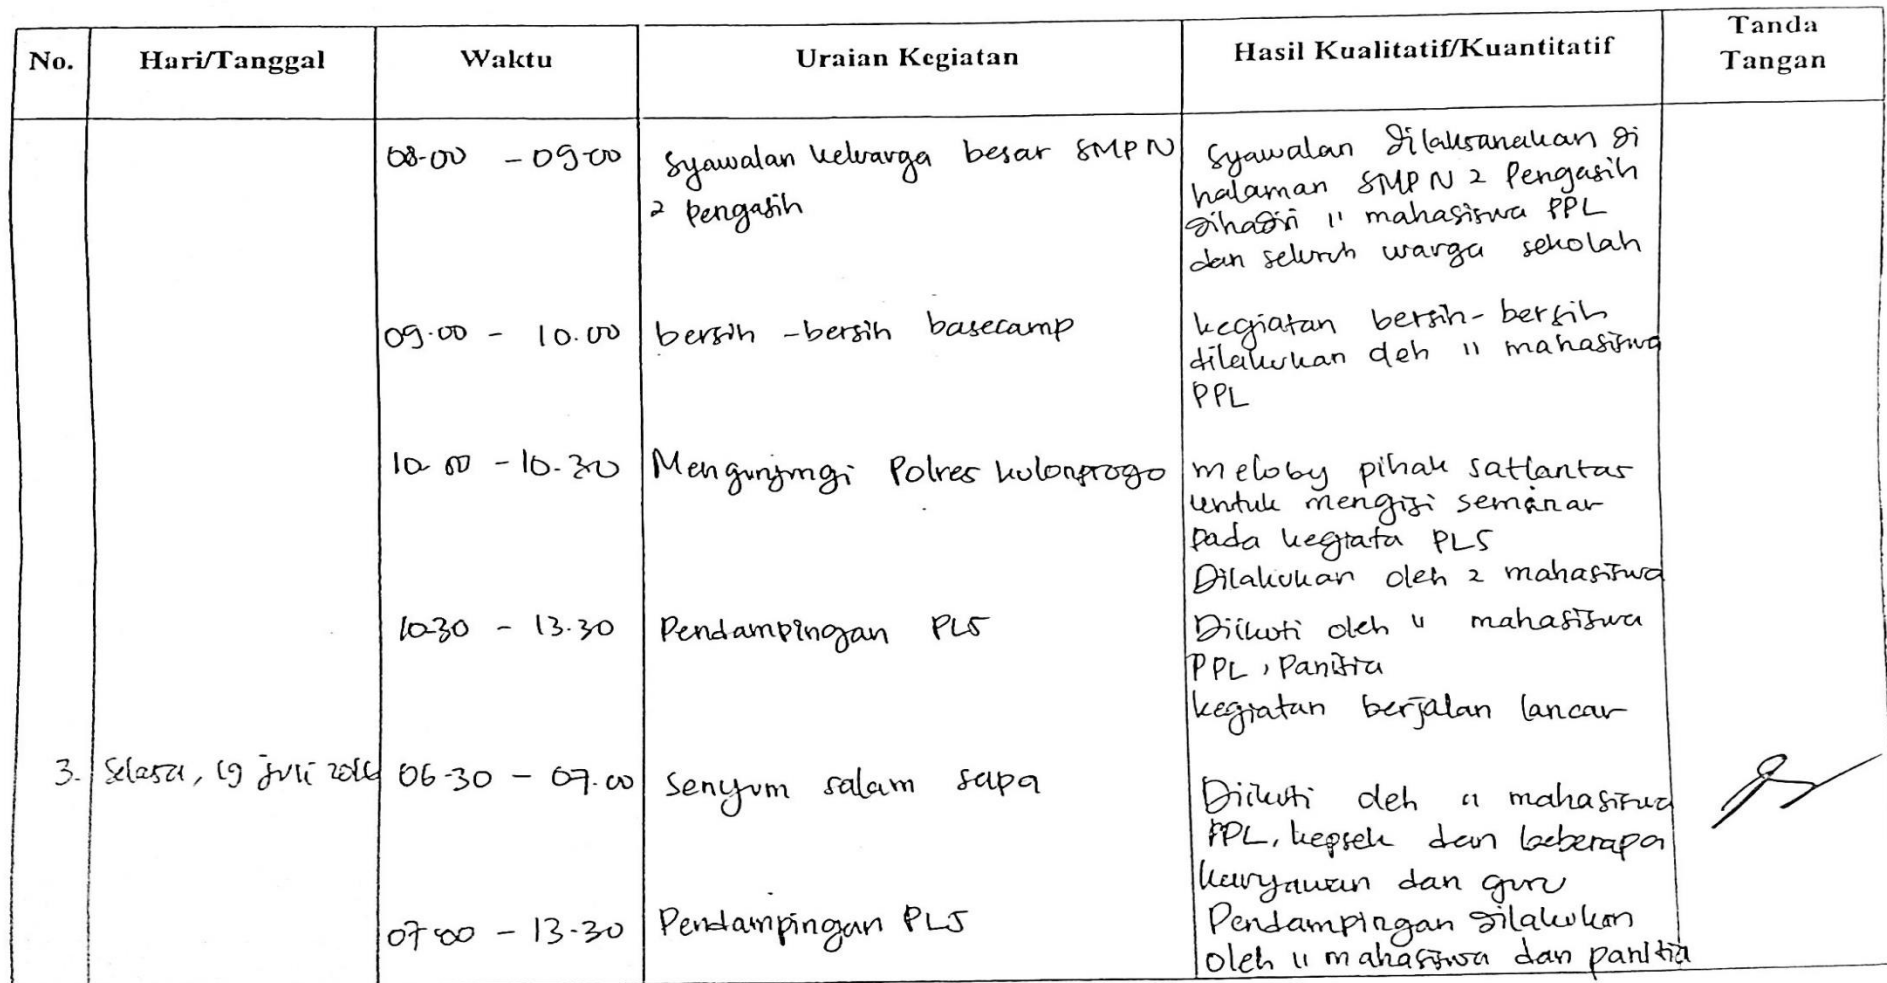 No. Hari/Tanggal Waktu Uraian Kegiatan Hasil Kualitatif/Kuantitatif Tanda Tangan
08.00 - 09.00 Syawalan keluarga besar SMPN
2 Pengasih
Syawalan dilaksanakan di
halaman SMPN 2 Pengasih
dihadiri 11 mahasiswa PPL
dan seluruh warga sekolah
09.00 - 10.00 bersih - bersih basecamp
kegiatan bersih-bersih
dilakukan oleh 11 mahasiswa
PPL
10.00 - 10.30 Mengunjungi Polres Kulonprogo
meloby pihak satlantas
untuk mengisi seminar
pada kegiata PLS
Dilakukan oleh 2 mahasiswa
10.30 - 13.30 Pendampingan PLS
Diikuti oleh 11 mahasiswa
PPL, Panitia
kegiatan berjalan lancar
3. Selasa, 19 Juli 2016 06.30 - 07.00 Senyum salam sapa
Diikuti oleh 11 mahasiswa
PPL, kepsek dan beberapa
karyawan dan guru
07.00 - 13.30 Pendampingan PLS
Pendampingan dilakukan
oleh 11 mahasiswa dan panitia